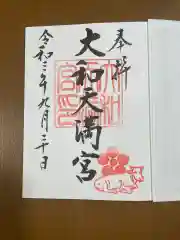 奉拝
大和天満宮
令和三年九月三十日